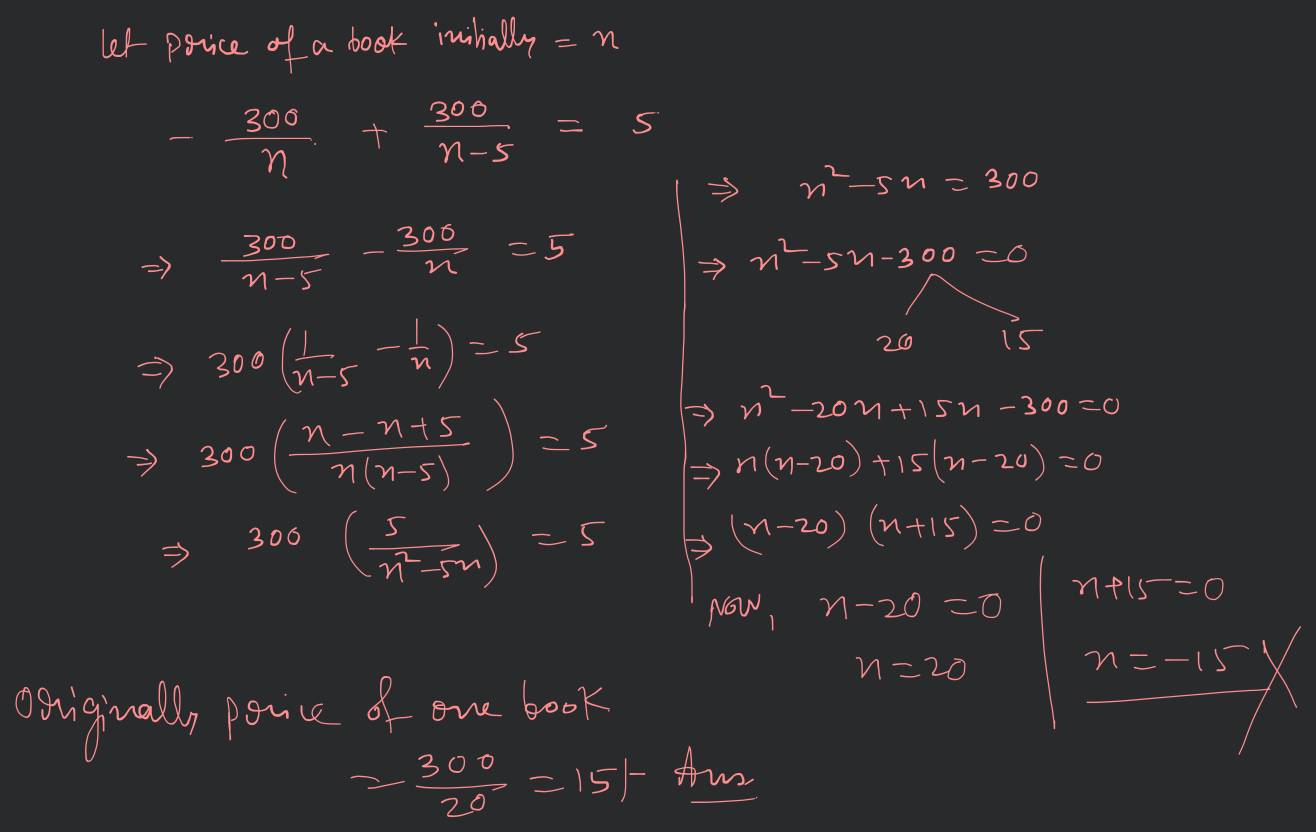 let price of a book initially = n
- 300/n + 300/(n-5) = 5
⇒ 300/(n-5) - 300/n = 5
⇒ 300 (1/(n-5) - 1/n) = 5
⇒ 300 ((n-n+5)/(n(n-5))) = 5
⇒ 300 (5/(n²-5n)) = 5
⇒ n²-5n = 300
⇒ n²-5n-300 = 0
20 15
⇒ n²-20n+15n-300=0
⇒ n(n-20)+15(n-20)=0
⇒ (n-20) (n+15)=0
NOW, n-20=0
n=20
n+15=0
n=-15 X
Originally price of one book
= 300/20 = 15/- Ans